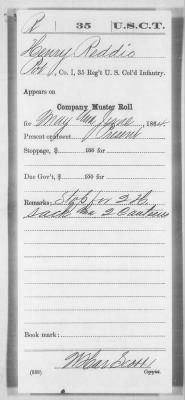 R | 35 | U.S.C.T.
Henry Reddic
Co. I, 35 Reg't U. S. Col'd Infantry.
Appears on
Company Muster Roll
for May and June, 1864.
Present or absent Present
Stoppage, $ 100 for
Due Gov't, $ 100 for
Remarks: Stop for 2 H.
sack 2 Canteens
Book mark:
(858) Copyist.